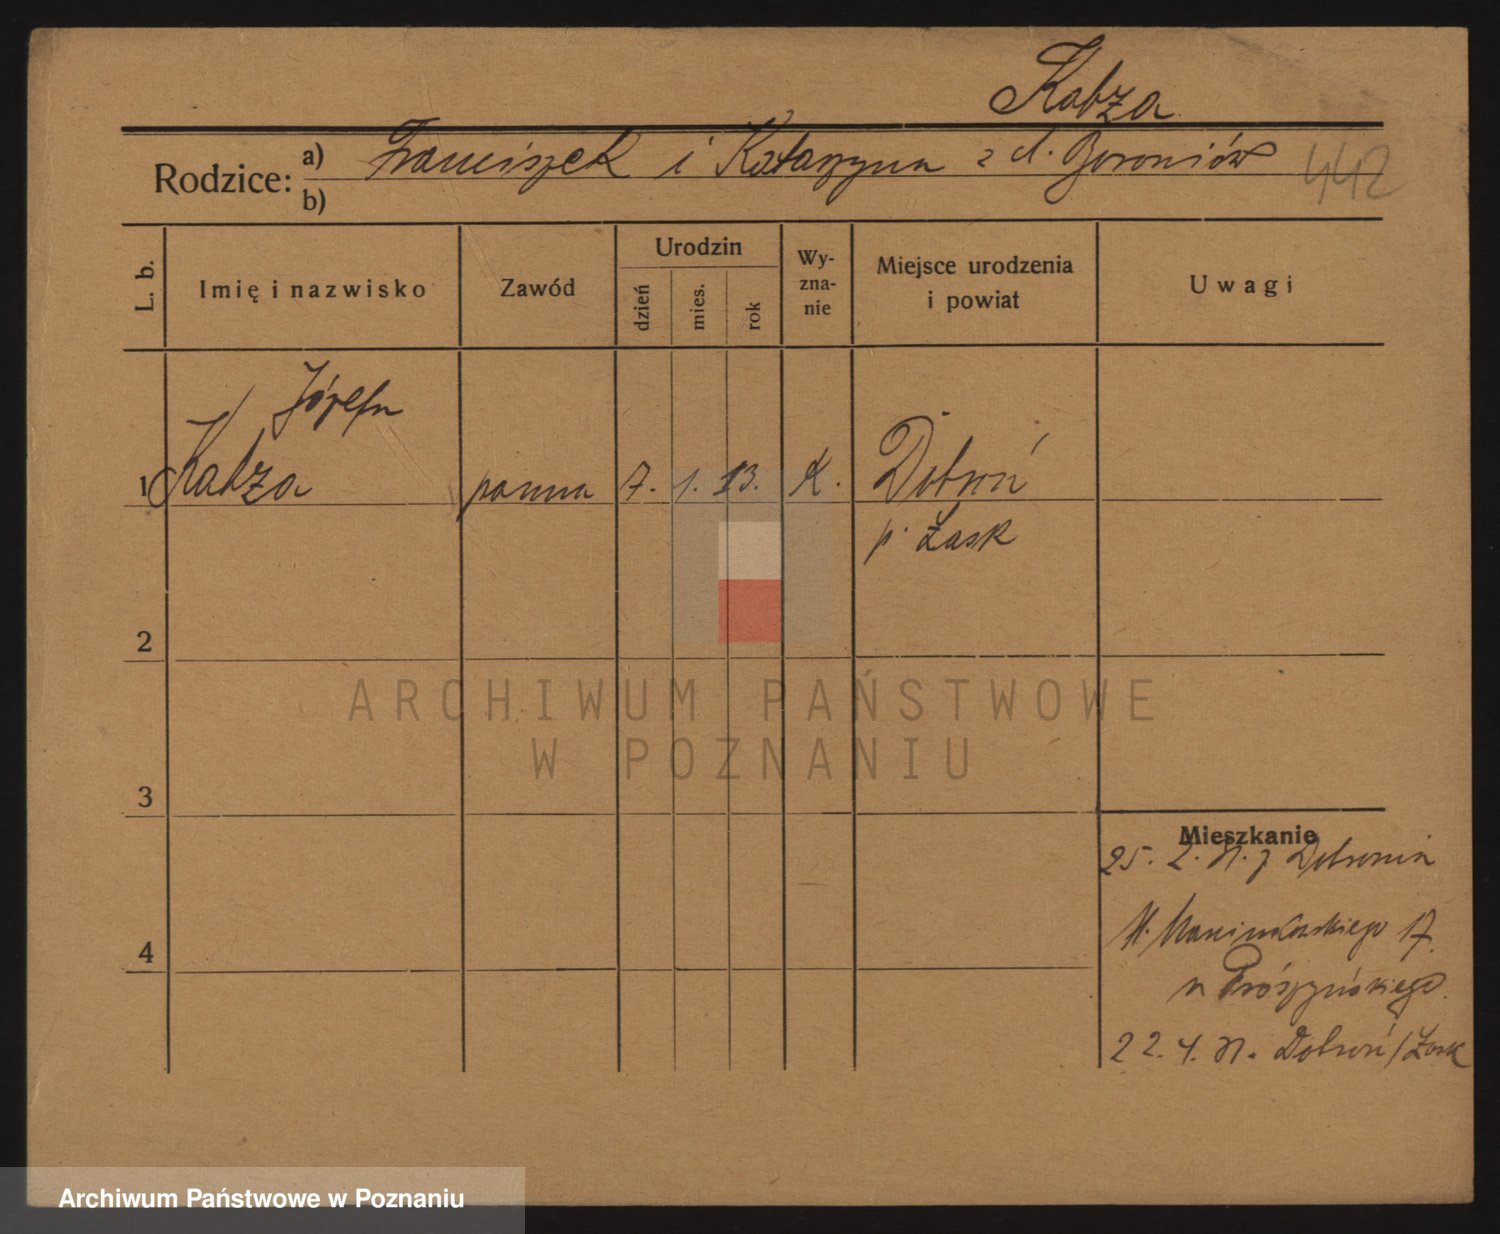 Kabza
Rodzice: a) Franciszek i Katarzyna z d. Boroniów 442
b)
L. b. Imię i nazwisko Zawód Urodzin dzień mies. rok Wy-zna-nie Miejsce urodzenia i powiat Uwagi
Józefa
1 Kabza panna 7. 1. 13. K. Dobroń
p. Łask
2
ARCHIWUM PAŃSTWOWE
W POZNANIU
3
Mieszkanie
25. 2. z Dobronia
17
4
n Prószyńskiego
22. 4. Dobroń/Łask
Archiwum Państwowe w Poznaniu